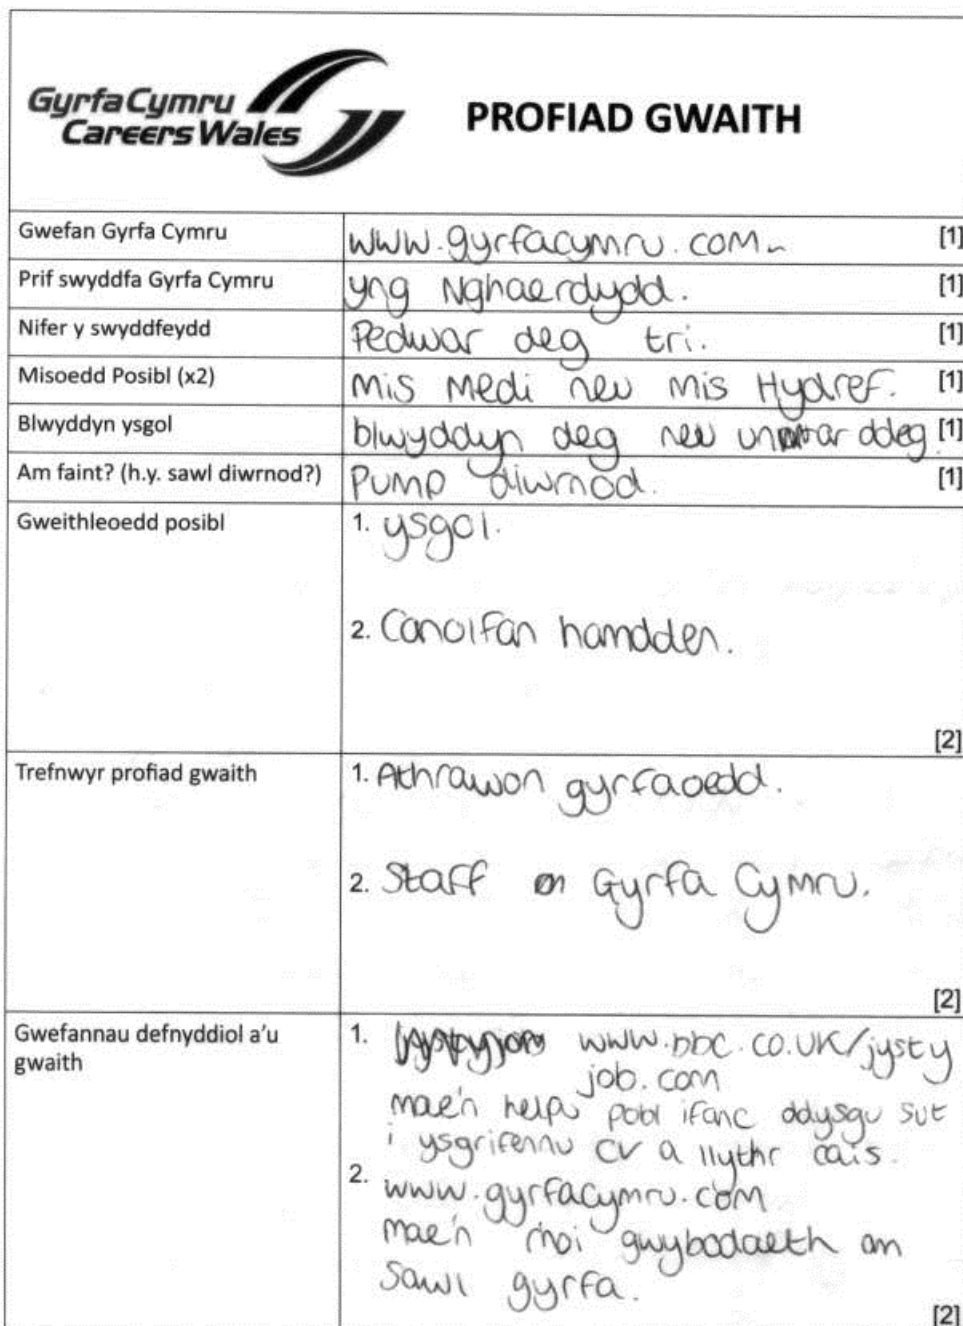 Gyrfa Cymru
Careers Wales
PROFIAD GWAITH
Gwefan Gyrfa Cymru www.gyrfacymru.com. [1]
Prif swyddfa Gyrfa Cymru yng Nghaerdydd. [1]
Nifer y swyddfeydd Pedwar deg tri. [1]
Misoedd Posibl (x2) mis Medi neu mis Hydref. [1]
Blwyddyn ysgol blwyddyn deg neu un ar ddeg. [1]
Am faint? (h.y. sawl diwrnod?) Pump diwrnod. [1]
Gweithleoedd posibl 1. ysgol.
2. Canolfan hamdden.
[2]
Trefnwyr profiad gwaith 1. Athrawon gyrfaoedd.
2. Staff Gyrfa Cymru.
[2]
Gwefannau defnyddiol a'u
gwaith
1. www.bbc.co.uk/jysty
job.com
mae'n helpu pobl ifanc ddysgu sut
i ysgrifennu CV a llythr cais.
2. www.gyrfacymru.com
mae'n rhoi gwybodaeth am
sawl gyrfa.
[2]